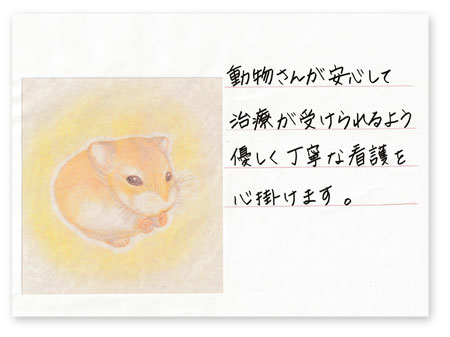 動物さんが安心して
治療が受けられるよう
優しく丁寧な看護を
心掛けます。